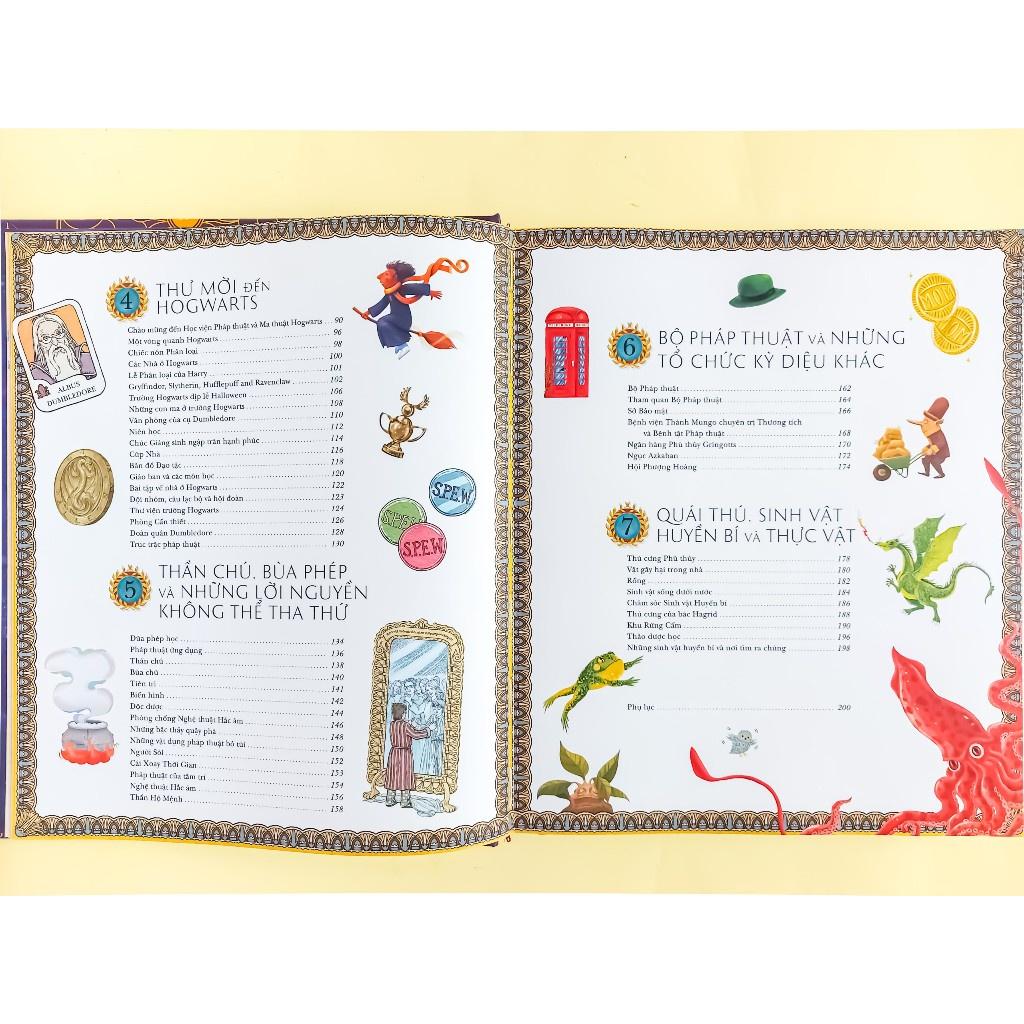 4
THƯ MỜI ĐẾN
HOGWARTS
Chào mừng đến Học viện Pháp thuật và Ma thuật Hogwarts ... 90
Một vòng quanh Hogwarts ... 96
Chiếc nón Phân loại ... 98
Các Nhà ở Hogwarts ... 100
Lễ Phân loại của Harry ... 101
Gryffindor, Slytherin, Hufflepuff and Ravenclaw ... 102
Trường Hogwarts dịp lễ Halloween ... 106
Những con ma ở trường Hogwarts ... 108
Văn phòng của cụ Dumbledore ... 110
Niên học ... 112
Chúc Giáng sinh ngập tràn hạnh phúc ... 114
Cúp Nhà ... 116
Bản đồ Đạo tặc ... 118
Giáo ban và các môn học ... 120
Bài tập về nhà ở Hogwarts ... 122
Đội nhóm, câu lạc bộ và hội đoàn ... 123
Thư viện trường Hogwarts ... 124
Phòng Cần thiết ... 126
Đoàn quân Dumbledore ... 128
Trục trặc pháp thuật ... 130
ALBUS
DUMBLEDORE
S.P.E.W
S.P.E.W
S.P.E.W
5
THẦN CHÚ, BÙA PHÉP
và NHỮNG LỜI NGUYỀN
KHÔNG THỂ THA THỨ
Đũa phép học ... 134
Pháp thuật ứng dụng ... 136
Thần chú ... 138
Bùa chú ... 140
Tiên tri ... 141
Biến hình ... 142
Độc dược ... 144
Phòng chống Nghệ thuật Hắc ám ... 146
Những bậc thầy quậy phá ... 148
Những vật dụng pháp thuật bỏ túi ... 150
Người Sói ... 152
Cái Xoay Thời Gian ... 153
Pháp thuật của tâm trí ... 154
Nghệ thuật Hắc ám ... 156
Thần Hộ Mệnh ... 158
6
BỘ PHÁP THUẬT và NHỮNG
TỔ CHỨC KỲ DIỆU KHÁC
Bộ Pháp thuật ... 162
Tham quan Bộ Pháp thuật ... 164
Sở Bảo mật ... 166
Bệnh viện Thánh Mungo chuyên trị Thương tích
và Bệnh tật Pháp thuật ... 168
Ngân hàng Phù thủy Gringotts ... 170
Ngục Azkaban ... 172
Hội Phượng Hoàng ... 174
7
QUÁI THÚ, SINH VẬT
HUYỀN BÍ và THỰC VẬT
Thú cưng Phù thủy ... 178
Vật gây hại trong nhà ... 180
Rồng ... 182
Sinh vật sống dưới nước ... 184
Chăm sóc Sinh vật Huyền bí ... 186
Thú cưng của bác Hagrid ... 188
Khu Rừng Cấm ... 190
Thảo dược học ... 196
Những sinh vật huyền bí và nơi tìm ra chúng ... 198
Phụ lục ... 200